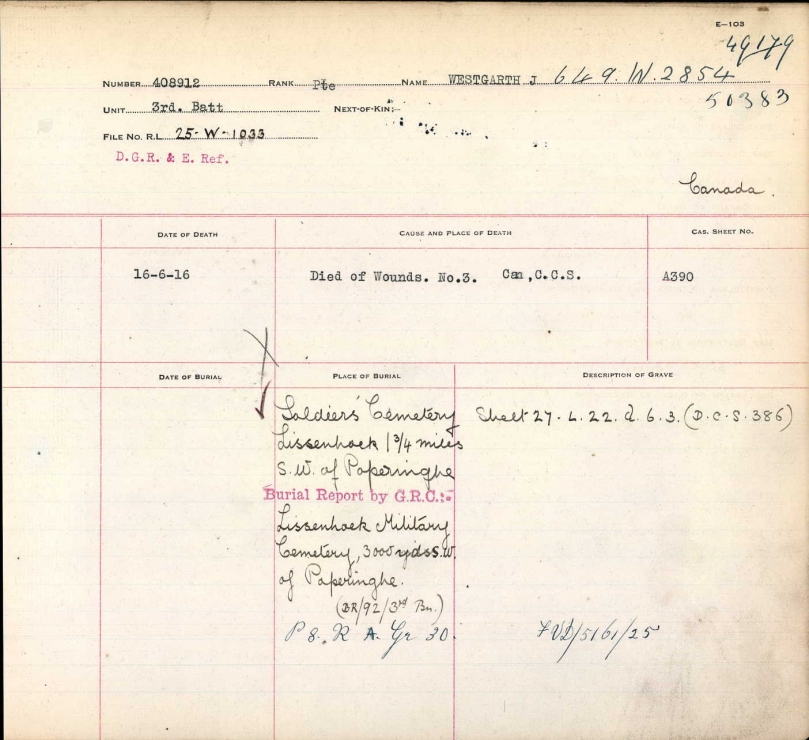 E—103
49179
NUMBER 408912 RANK Pte NAME WESTGARTH J 649.W.2854
50383
UNIT 3rd. Batt NEXT-OF-KIN:—
FILE NO. R.L. 25-W-1033
D.G.R. & E. Ref.
Canada.
DATE OF DEATH CAUSE AND PLACE OF DEATH CAS. SHEET NO.
16-6-16 Died of Wounds. No.3. Can,C.C.S. A390
DATE OF BURIAL PLACE OF BURIAL DESCRIPTION OF GRAVE
Soldiers' Cemetery Sheet 27. L. 22. d. 6.3. (D.C.S. 386)
Lissenhoek 1 3/4 miles
S.W. of Poperinghe
Burial Report by G.R.C.:-
Lissenhoek Military
Cemetery, 3000 yds S.W.
of Poperinghe.
(BR/92/3rd Bn.)
P 8. R A. Gr 30. FVD/5161/25